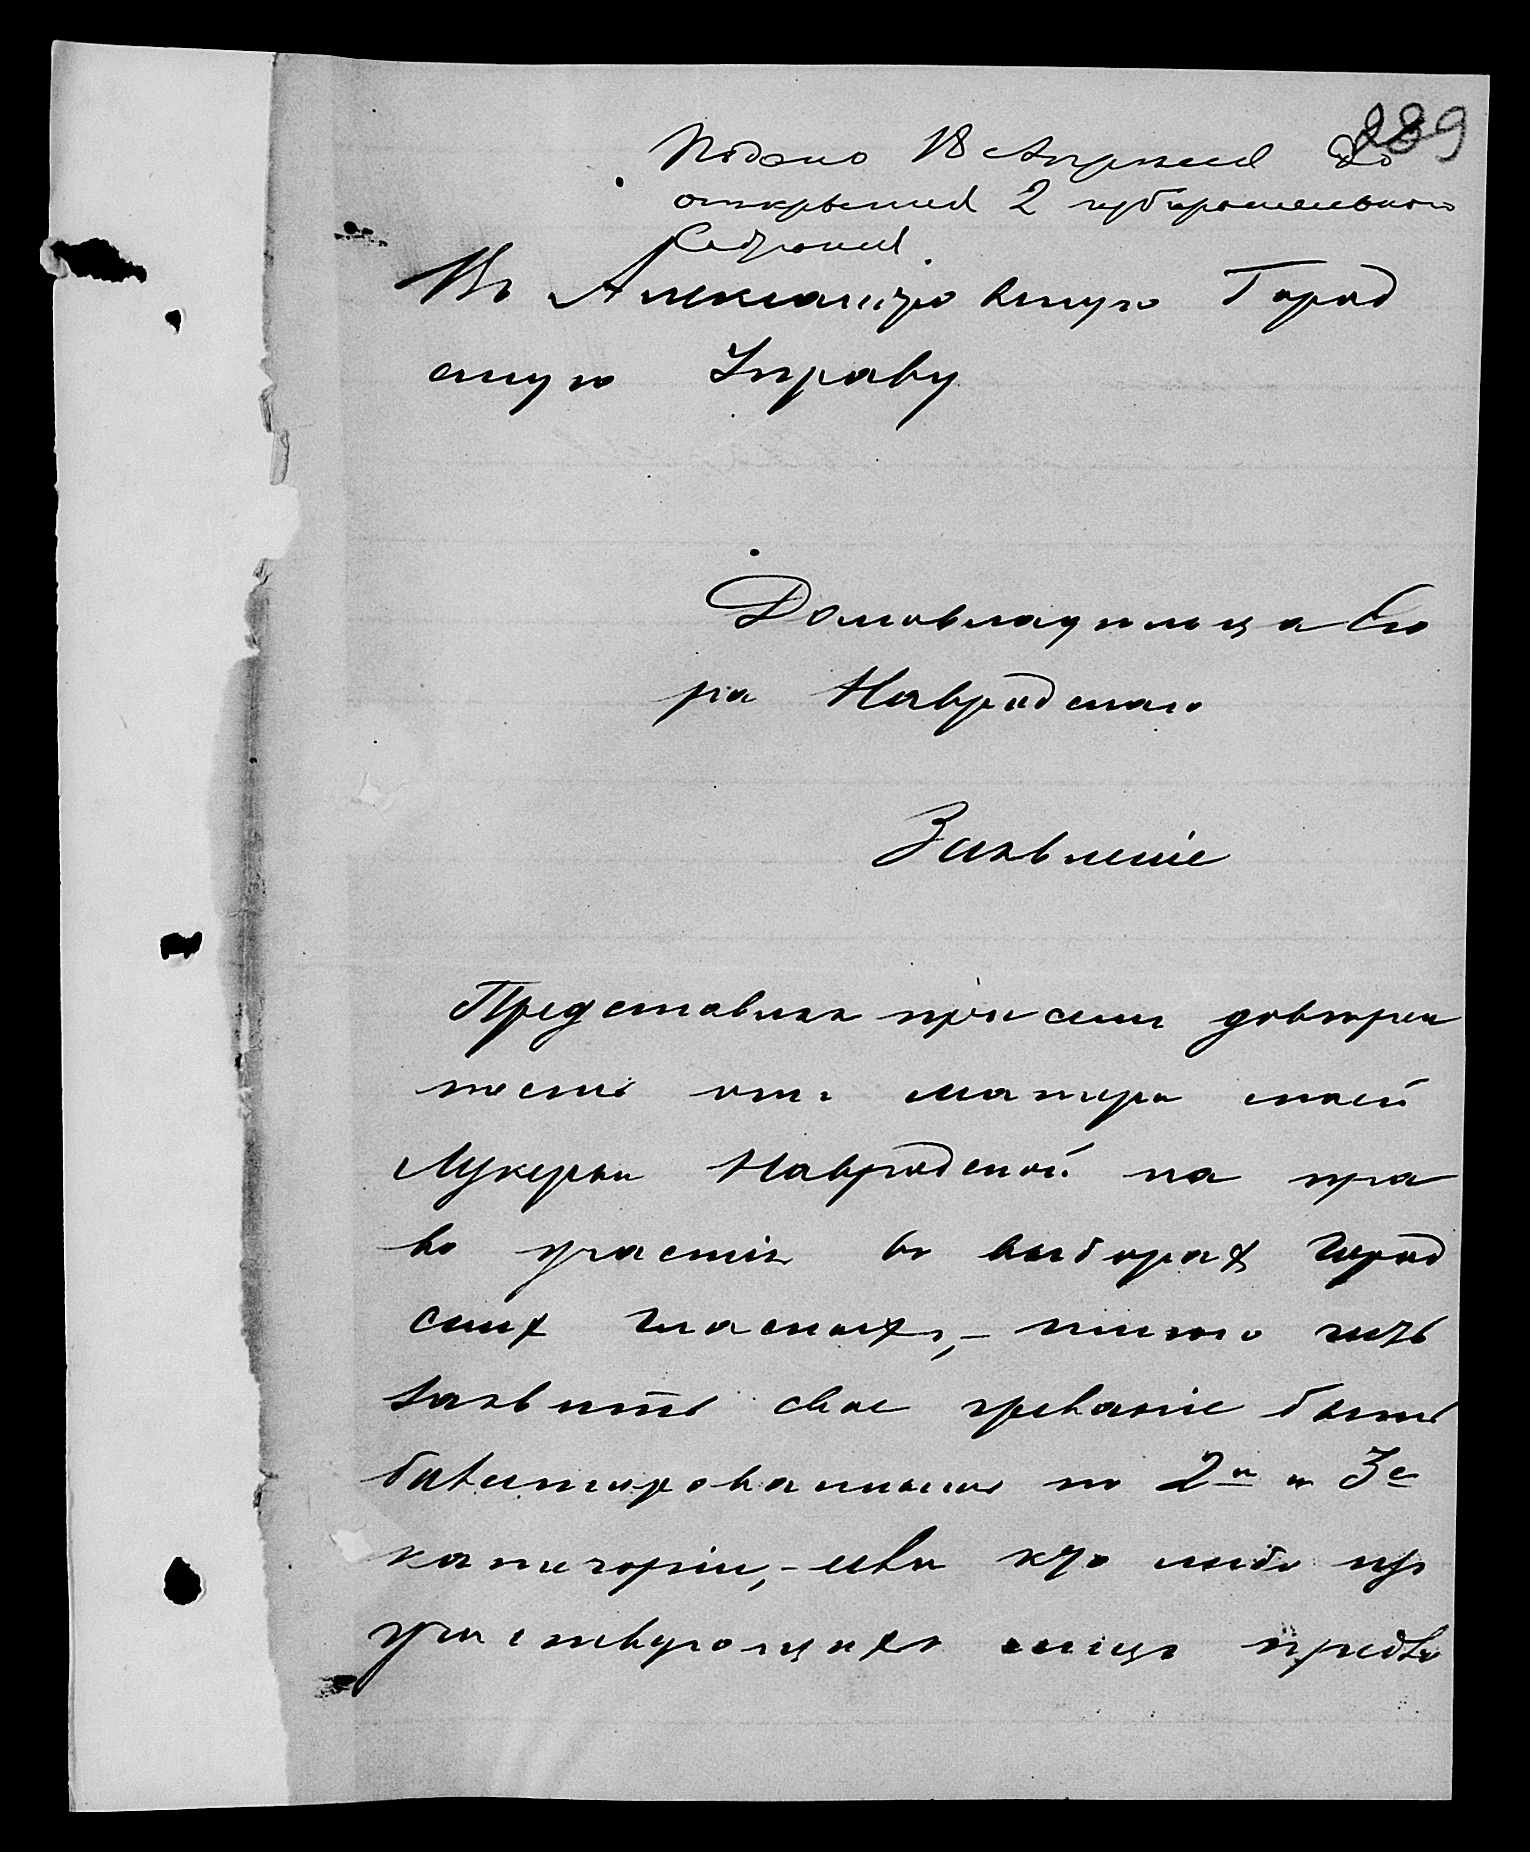 289
Подано 18 Апреля до
открытия 2 избирательного
Собрания
Въ Александровскую Город
скую Управу
Домовладельца Его
ра Навродскаго
Заявленіе
Представляя при семъ доверен
ность отъ матери моей
Лукерьи Навродской на пра
во участія въ выборах Город
ских гласныхъ, – имею честь
заявить свое желаніе быть
балатированнымъ по 2й и 3й
категоріи, – если кто либо изъ
участвующихъ лицъ предло